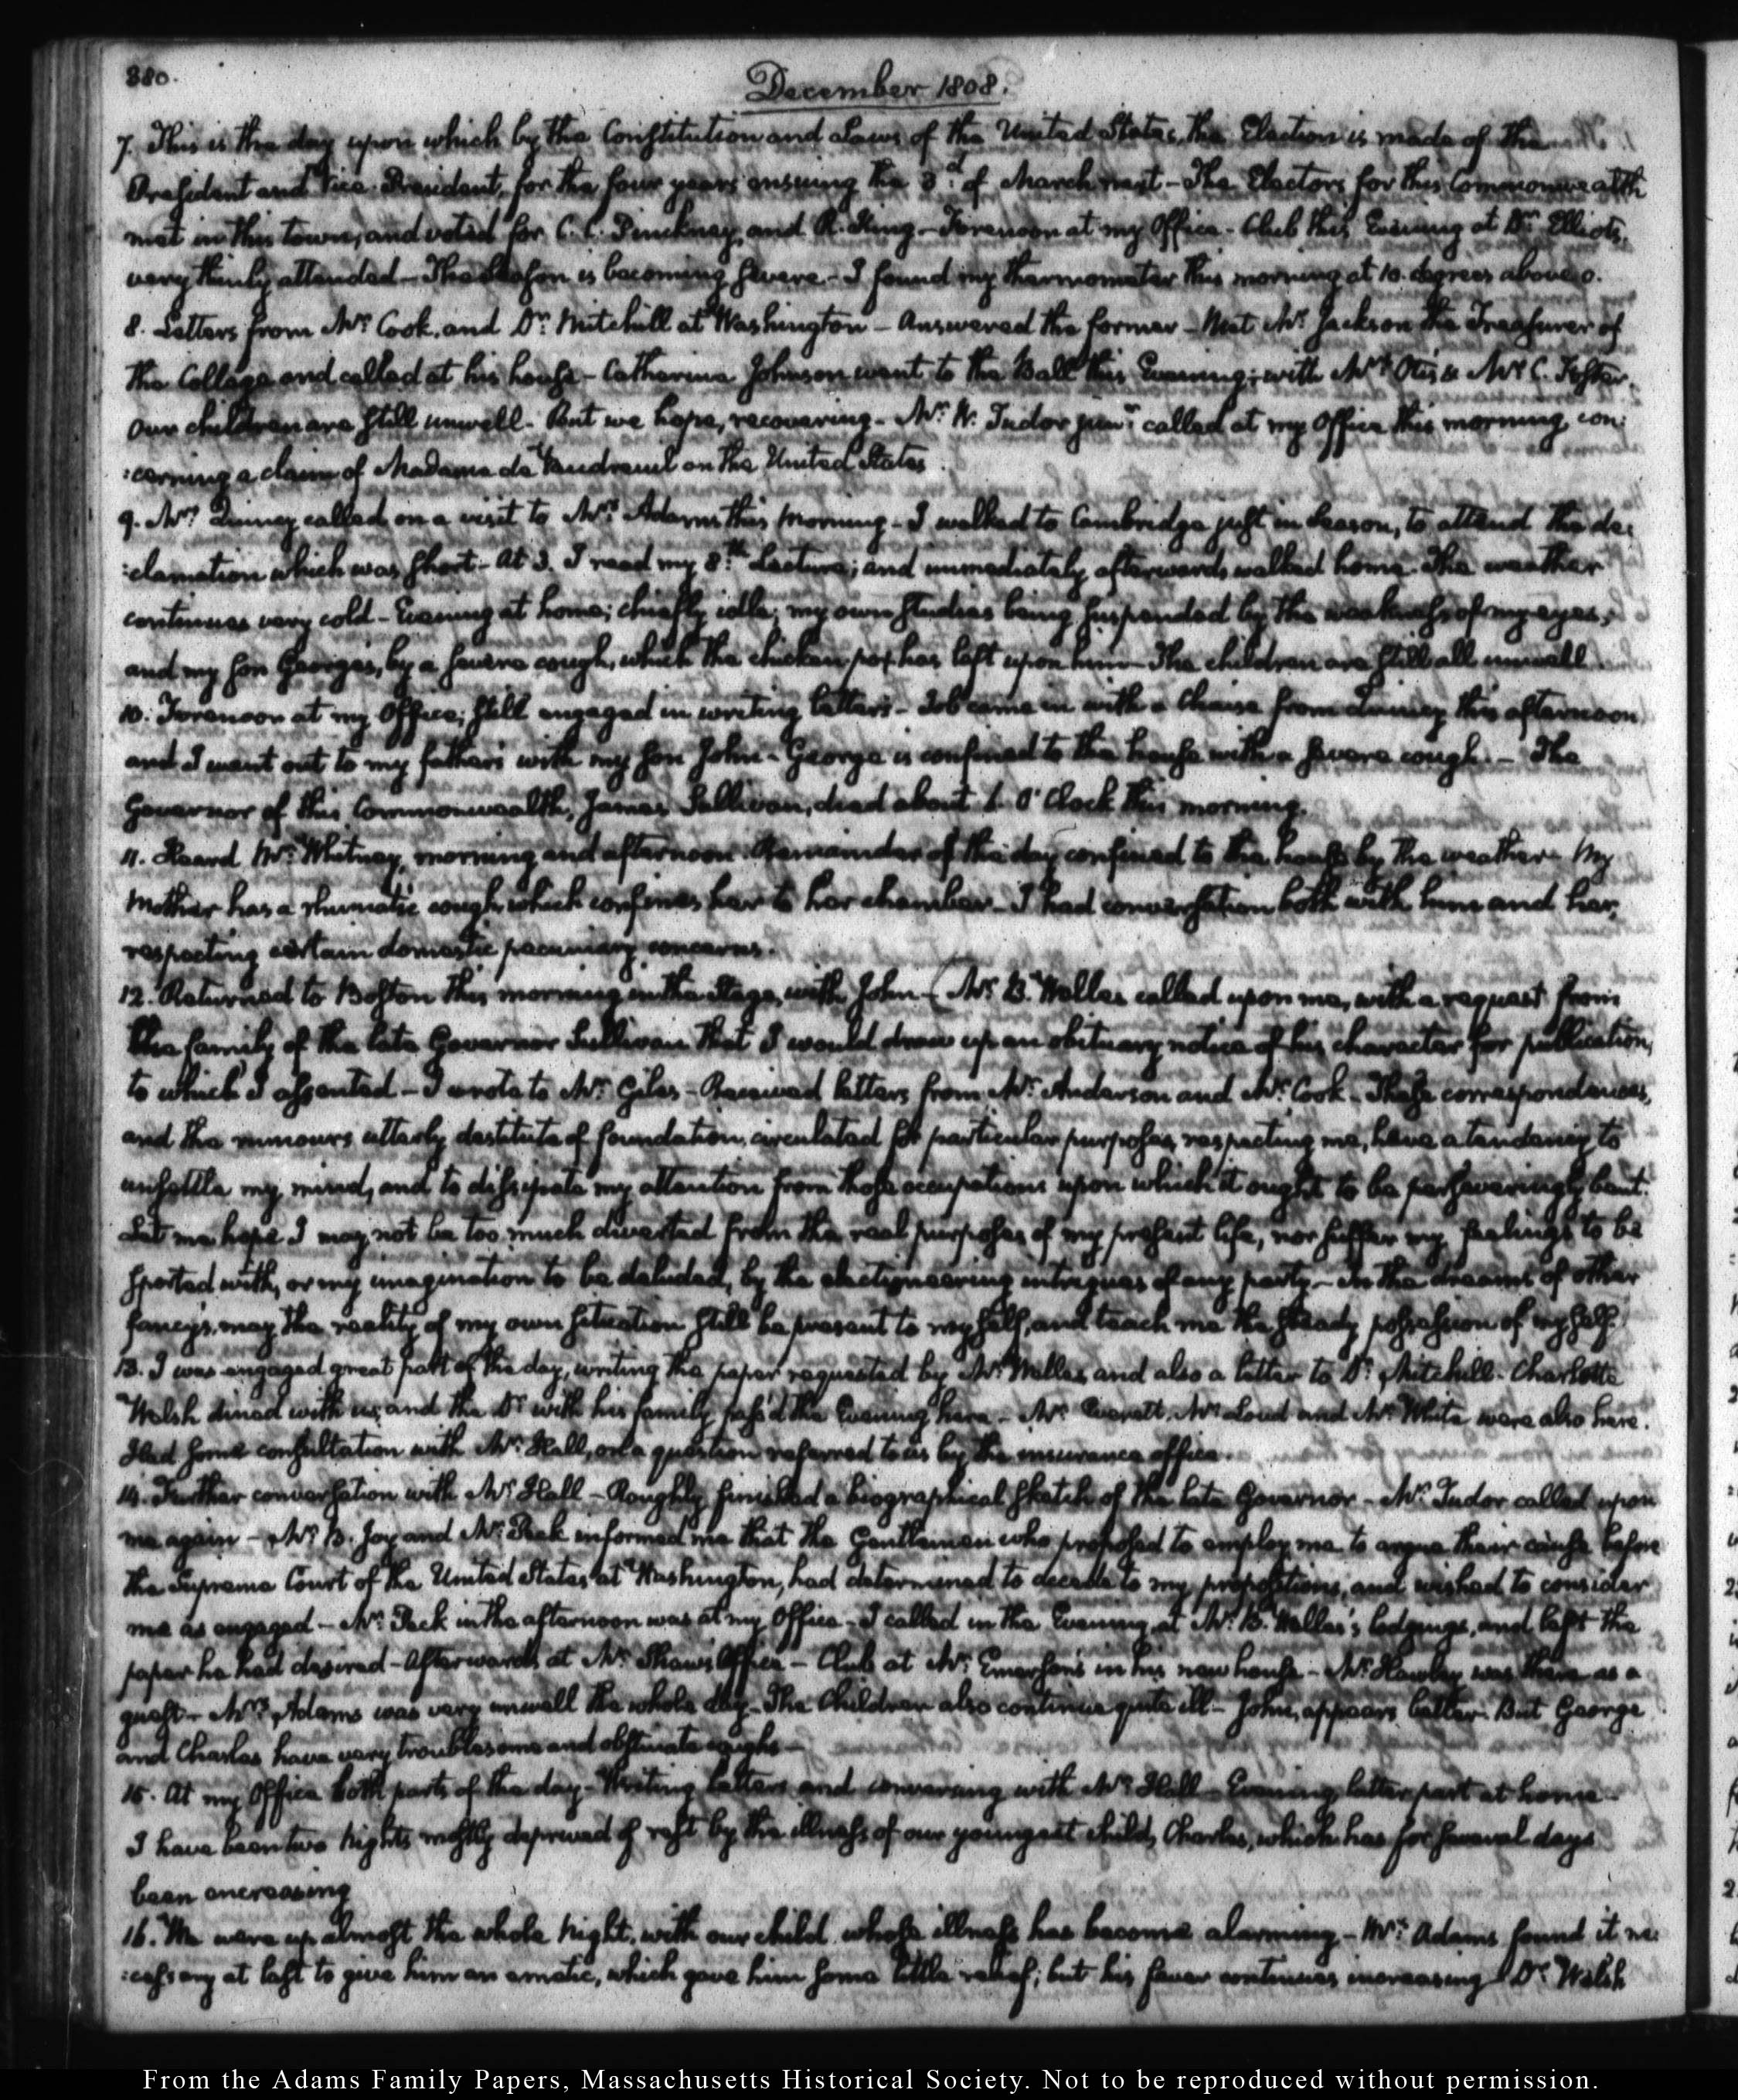 380.
December 1808.
7. This is the day upon which by the Constitution and Laws of the United States, the Election is made of the
President and Vice-President, for the four years ensuing the 3.d of March next - The Electors for this Commonwealth
met in this town, and voted for C. C. Pinckney, and R. King - Forenoon at my Office - Club this Evening at Dr. Elliot's,
very thinly attended - The Season is becoming severe - I found my thermometer this morning at 10. degrees above 0.
8. Letters from Mr. Cook, and Dr. Mitchill at Washington - Answered the former - Met Mr. Jackson the Treasurer of
the College and called at his house - Catharine Johnson went to the Ball this Evening; with Mrs. Otis & Mrs. C. Foster.
Our children are still unwell - But we hope, recovering - Mr. W. Tudor junr. called at my Office this morning, con:
:cerning a claim of Madame de Vaudreuil on the United States.
9. Mrs. Quincy called on a visit to Mrs. Adams this morning - I walked to Cambridge just in Season, to attend the de:
:clamation which was short - At 3. I read my 8.th Lecture; and immediately afterwards walked home. The weather
continues very cold - Evening at home; chiefly idle; my own Studies being suspended by the weakness of my eyes;
and my Son George's, by a severe cough, which the chicken pox has left upon him - The children are still all unwell.
10. Forenoon at my Office; still engaged in writing letters - Job came in with a Chaise from Quincy this afternoon,
and I went out to my father's with my Son John - George is confined to the house with a severe cough. - The
Governor of this Commonwealth, James Sullivan, died about 1. O'Clock this morning.
11. Heard Mr. Whitney, morning and afternoon. Remainder of the day confined to the house by the weather - My
Mother has a rhumatic cough which confines her to her chamber - I had conversation both with him and her,
respecting certain domestic pecuniary concerns.
12. Returned to Boston this morning in the Stage, with John - (Mr. B. Welles called upon me, with a request from
the family of the late Governor Sullivan that I would draw up an obituary notice of his character for publication,
to which I assented - I wrote to Mr. Giles - Received letters from Mr. Anderson and Mr. Cook - These correspondences,
and the rumours utterly destitute of foundation, circulated for particular purposes, respecting me, have a tendency to
unsettle my mind, and to dissipate my attention from those occupations upon which it ought to be perseveringly bent.
Let me hope I may not be too much diverted from the real purposes of my present life, nor suffer my feelings to be
sported with, or my imagination to be deluded, by the electioneering intrigues of any party - In the dreams of other
fancy's, may the reality of my own situation still be present to myself, and teach me the steady possession of myself.
13. I was engaged great part of the day, writing the paper requested by Mr. Welles and also a letter to Dr. Mitchill - Charlotte
Welsh dined with us, and the Dr. with his family pass'd the Evening here - Mr. Everett, Mr. Loud and Mr. White were also here.
Had some consultation with Mr. Hall, on a question referred to us by the insurance office.
14. Further conversation with Mr. Hall - Roughly finished a biographical sketch of the late Governor - Mr. Tudor called upon
me again - Mr. B. Joy and Mr. Peck informed me that the Gentlemen who proposed to employ me to argue their cause before
the Supreme Court of the United States at Washington, had determined to accede to my propositions, and wished to consider
me as engaged - Mr. Peck in the afternoon was at my Office - I called in the Evening at Mr. B. Welles's lodgings, and left the
paper he had desired - Afterwards at Mr. Shaw's Office - Club at Mr. Emerson's in his new house - Mr. Hawley was there as a
guest - Mrs. Adams was very unwell the whole day - The Children also continue quite ill - John, appears better - But George
and Charles have very troublesome and obstinate coughs -
15. At my Office both parts of the day - Writing letters and conversing with Mr. Hall - Evening latter part at home -
I have been two Nights mostly deprived of rest by the illness of our youngest child, Charles, which has for several days
been encreasing
16. We were up almost the whole Night, with our child, whose illness has become alarming - Mrs. Adams found it ne:
:cessary at last to give him an emetic, which gave him some little relief; but his fever continues increasing. Dr. Welsh
From the Adams Family Papers, Massachusetts Historical Society. Not to be reproduced without permission.